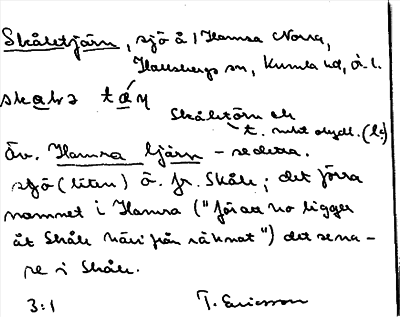 Skåletjärn, sjö å 1 Hamra Norra,
Hallsbergs sn, Kumla hd, Ö. l.
skalɜ tän
Skåletörn ek
t. mkt otydl. (lɜ)
Äv. Hamra tjärn - se detta.
sjö (liten) ö. fr. Skåle; det förra
namnet i Hamra ("för att ho ligger
åt Skåle häri från räknat") det sena-
re i Skåle.
3:1 T. Ericsson